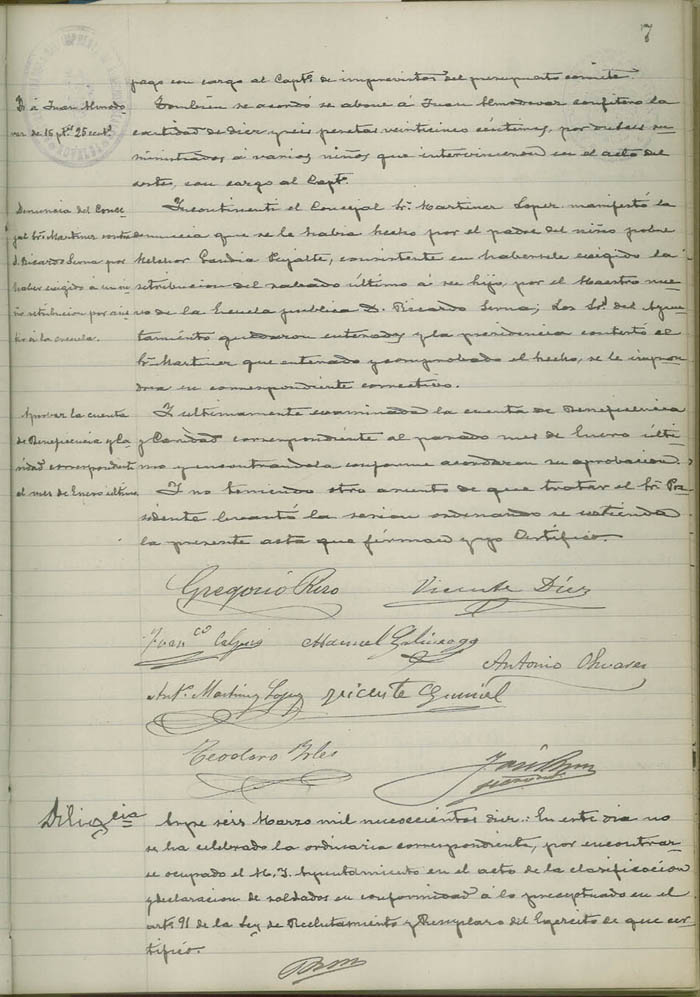 7
pago con cargo al Capt.º de imprevistos del presupuesto
Id. á Juan Almodo
var de 16 pt.s 25 cent.s
Tambien se acordó se abone á Juan Almodovar confitero la
cantidad de diez y seis pesetas veinticinco céntimos, por dulces su
ministrados á varios niños que intervinieron en el acto del
con cargo al Capt.º
Denuncia del Conce
jal Sr. Martinez contra
D. Ricardo Serna por
haber exigido a un ni
ño retribucion por
á la escuela.
Incontinenti el Concejal Sr. Martinez Lopez manifestó la
denuncia que se le habia hecho por el padre del niño pobre
Melchor Gandia consistente en habersele exigido la
retribucion del sabado último á su hijo, por el Maestro nue
vo de la Escuela publica D. Ricardo Serna; Los Sres. del Ayun
tamiento quedaron enterados y la presidencia contestó al
Sr. Martinez que enterado y comprobado el hecho, se le impon
dria su correspondiente correctivo.
Aprobar la cuenta
de Beneficencia y Ca
ridad correspondiente
al mes de Enero último
Y ultimamente examinada la cuenta de Beneficencia
y Caridad correspondiente al pasado mes de Enero últi
mo y encontrandola conforme acordaron su aprobacion.
Y no teniendo otro asunto de que tratar el Sr. Pre
sidente levantó la sesion ordenando se extienda
la presente acta que firman y yo Certifico.
Gregorio Vicente Díez
Juan Manuel
Antonio Olivares
Ant.º Martinez Lopez Vicente
Teodoro
José
Diligcia
Aspe seis Marzo mil nuevecientos diez: En este dia no
se ha celebrado la ordinaria correspondiente, por encontrar
se ocupado el M. I. Ayuntamiento en el acto de la clasificacion
y declaracion de soldados en conformidad á lo preceptuado en el
artº. 91 de la Ley de Reclutamiento y Remplazo del Ejercito de que cer
tifico.